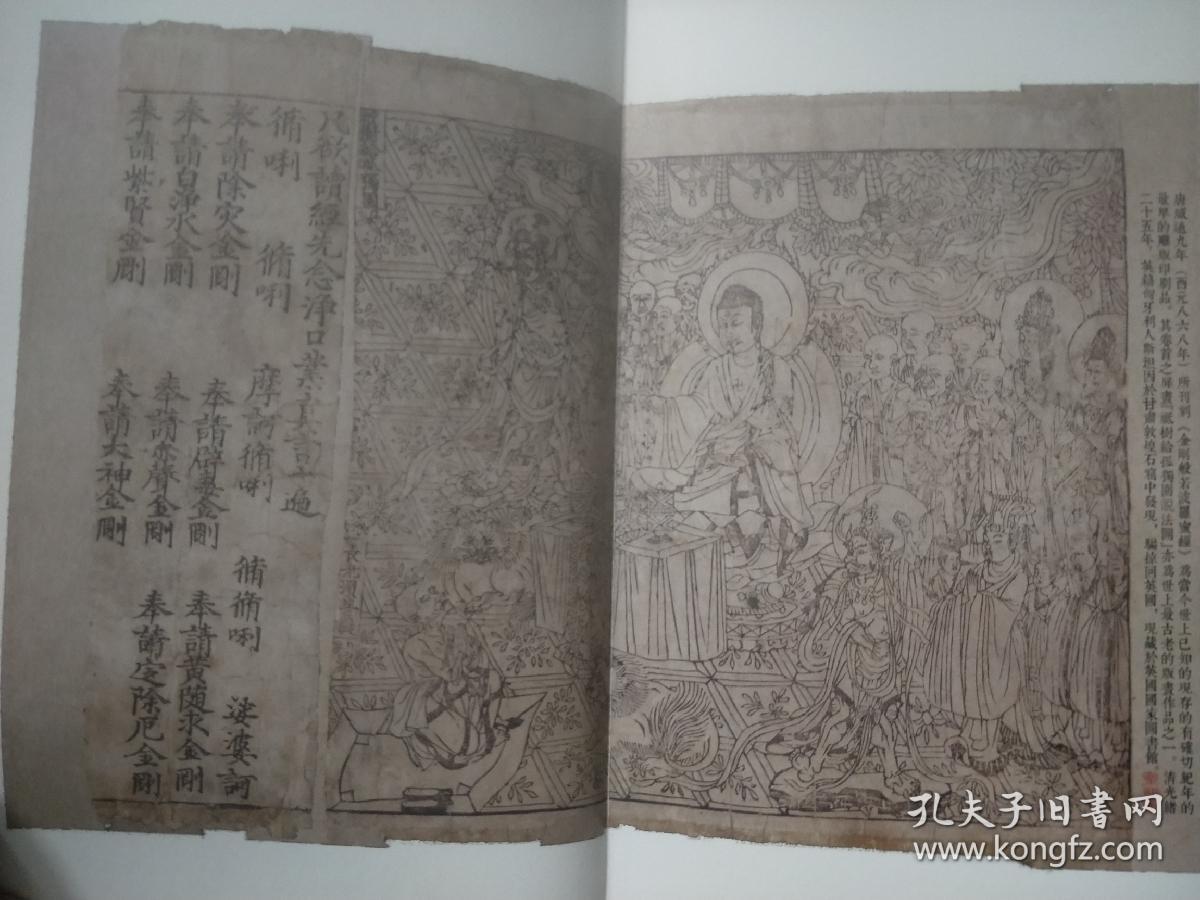 唐咸通九年（西元八六八年）所刊刻《金剛般若波羅蜜經》爲當今世上已知的現存的有確切紀年的
最早的雕版印刷品。其卷首之扉畫祇樹給孤獨園說法圖亦爲世上最古老的版畫作品之一。清光緒
二十五年，英籍匈牙利人斯坦因於甘肅敦煌石窟中發現，騙掠到英國，現藏於英國國家圖書館
凡欲讀經先念淨口業真言一遍
脩唎 脩唎 摩訶脩唎 脩脩唎 娑婆訶
奉請除灾金剛 奉請辟毒金剛 奉請黃隨求金剛
奉請白淨水金剛 奉請赤聲金剛 奉請定除厄金剛
奉請紫賢金剛 奉請大神金剛
孔夫子旧书网
www.kongfz.com